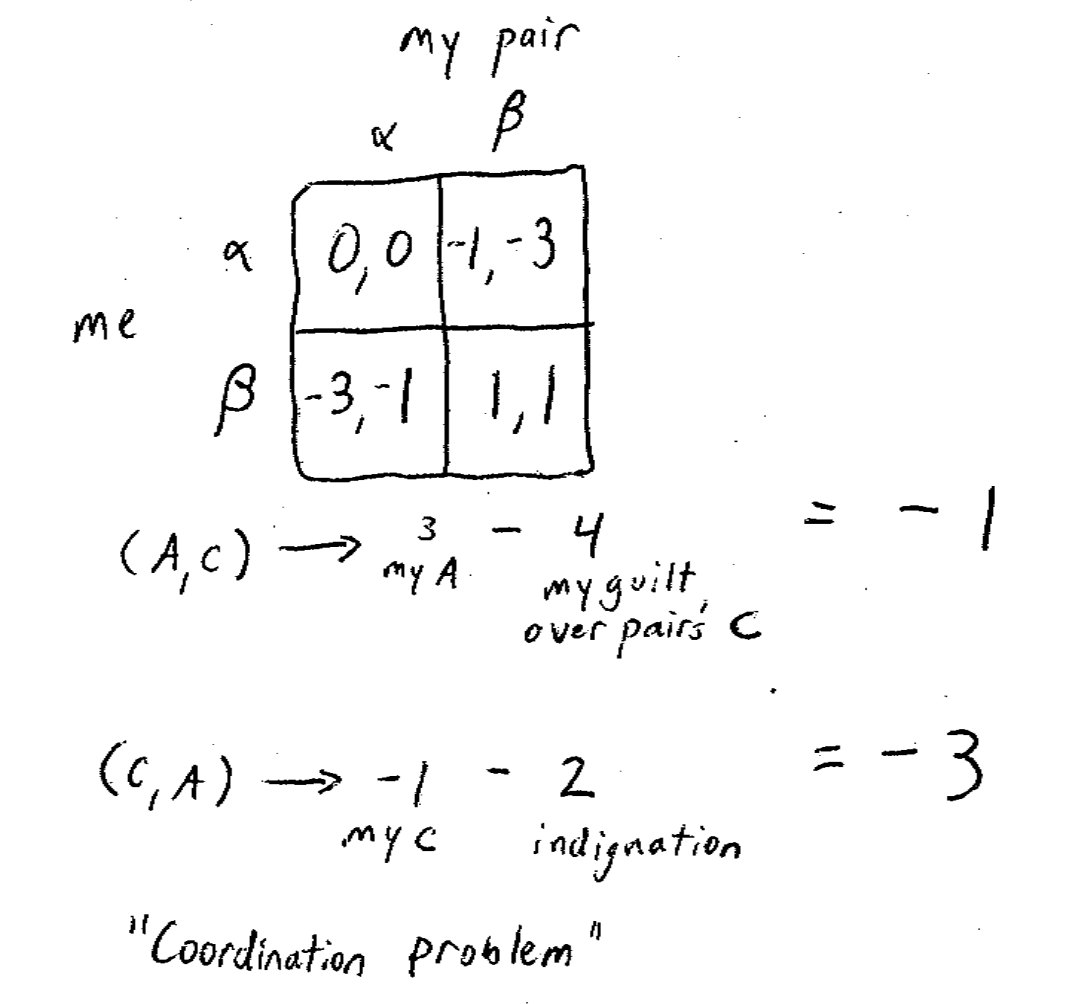 my pair
α β
α 0,0 -1,-3
me
β -3,-1 1,1
(A,C) → 3 - 4 = -1
my A my guilt
over pairs' C
(C,A) → -1 - 2 = -3
my C indignation
"Coordination problem"